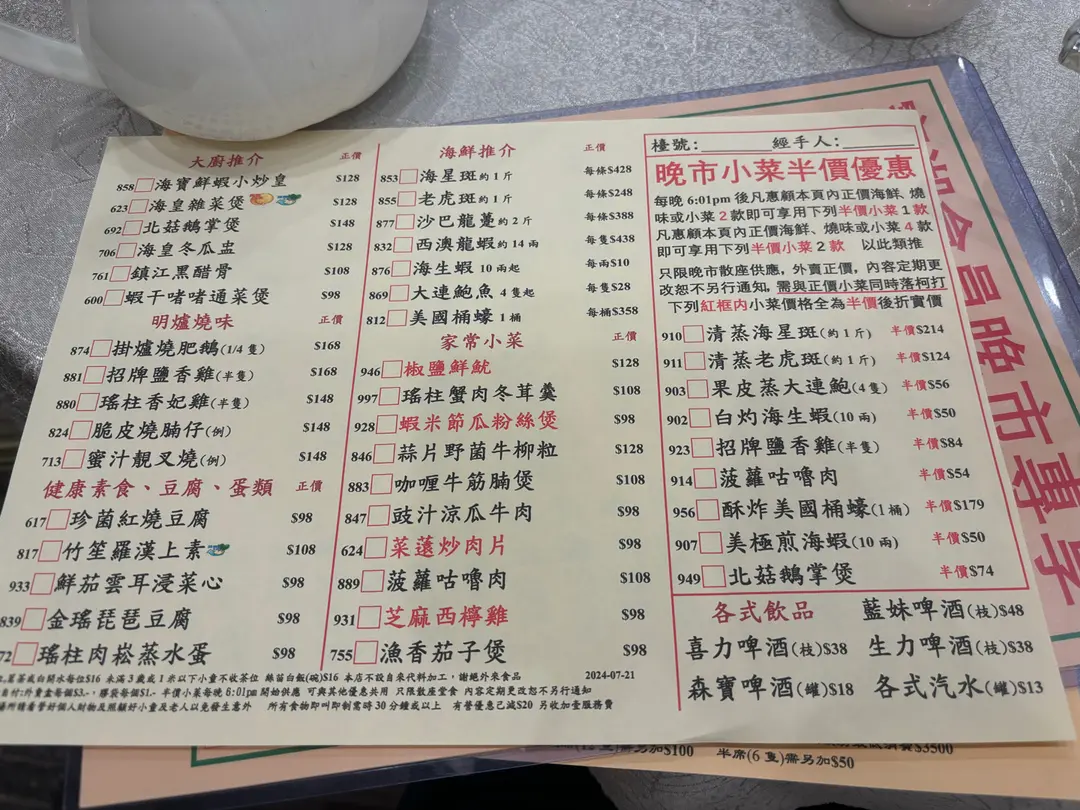 大廚推介 正價
858 海寶鮮蝦小炒皇 $128
623 海皇雜菜煲 $128
692 北菇鵝掌煲 $148
706 海皇冬瓜盅 $128
761 鎮江黑醋骨 $108
600 蝦干啫啫通菜煲 $98
明爐燒味 正價
874 掛爐燒肥鵝(1/4 隻) $168
881 招牌鹽香雞(半隻) $168
880 瑤柱香妃雞(半隻) $148
824 脆皮燒腩仔(例) $148
713 蜜汁靚叉燒(例) $148
健康素食、豆腐、蛋類 正價
617 珍菌紅燒豆腐 $98
817 竹笙羅漢上素 $108
933 鮮茄雲耳浸菜心 $98
839 金瑤琵琶豆腐 $98
72 瑤柱肉崧蒸水蛋 $98
海鮮推介 正價
853 海星斑 約 1 斤 每條$428
855 老虎斑 約 1 斤 每條$248
877 沙巴龍躉 約 2 斤 每條$388
832 西澳龍蝦 約 14 兩 每隻$438
876 海生蝦 10 兩起 每兩$10
869 大連鮑魚 4 隻起 每隻$28
812 美國桶蠔 1 桶 每桶$358
家常小菜 正價
946 椒鹽鮮魷 $128
997 瑤柱蟹肉冬茸羹 $108
928 蝦米節瓜粉絲煲 $98
846 蒜片野菌牛柳粒 $128
883 咖喱牛筋腩煲 $108
847 豉汁涼瓜牛肉 $98
624 菜薳炒肉片 $98
889 菠蘿咕嚕肉 $108
931 芝麻西檸雞 $98
755 漁香茄子煲 $98
檯號: 經手人:
晚市小菜半價優惠
每晚 6:01pm 後凡惠顧本頁內正價海鮮、燒
味或小菜 2 款即可享用下列半價小菜 1 款
凡惠顧本頁內正價海鮮、燒味或小菜 4 款
即可享用下列半價小菜 2 款 以此類推
只限晚市散座供應, 外賣正價, 內容定期更
改恕不另行通知, 需與正價小菜同時落柯打
下列紅框内小菜價格全為半價後折實價
910 清蒸海星斑(約 1 斤) 半價$214
911 清蒸老虎斑(約 1 斤) 半價$124
903 果皮蒸大連鮑(4 隻) 半價$56
902 白灼海生蝦(10 兩) 半價$50
923 招牌鹽香雞(半隻) 半價$84
914 菠蘿咕嚕肉 半價$54
956 酥炸美國桶蠔(1 桶) 半價$179
907 美極煎海蝦(10 兩) 半價$50
949 北菇鵝掌煲 半價$74
各式飲品 藍妹啤酒(枝)$48
喜力啤酒(枝)$38 生力啤酒(枝)$38
森寶啤酒(罐)$18 各式汽水(罐)$13
茗茶或白開水每位$16 未滿 3 歲或 1 米以下小童不收茶位 絲苗白飯(碗)$16 本店不設自來代料加工, 謝絕外來食品 2024-07-21
外賣盒每個$3.-, 膠袋每個$1.- 半價小菜每晚 6:01pm 開始供應 可與其他優惠共用 只限散座堂食 內容定期更改恕不另行通知
場所請看管好個人財物及照顧好小童及老人以免發生意外 所有食物即叫即制需時 30 分鐘或以上 有營優惠已減$20 另收加壹服務費
會員晚市專享
需另加$100 半席(6 隻)需另加$50
$3500